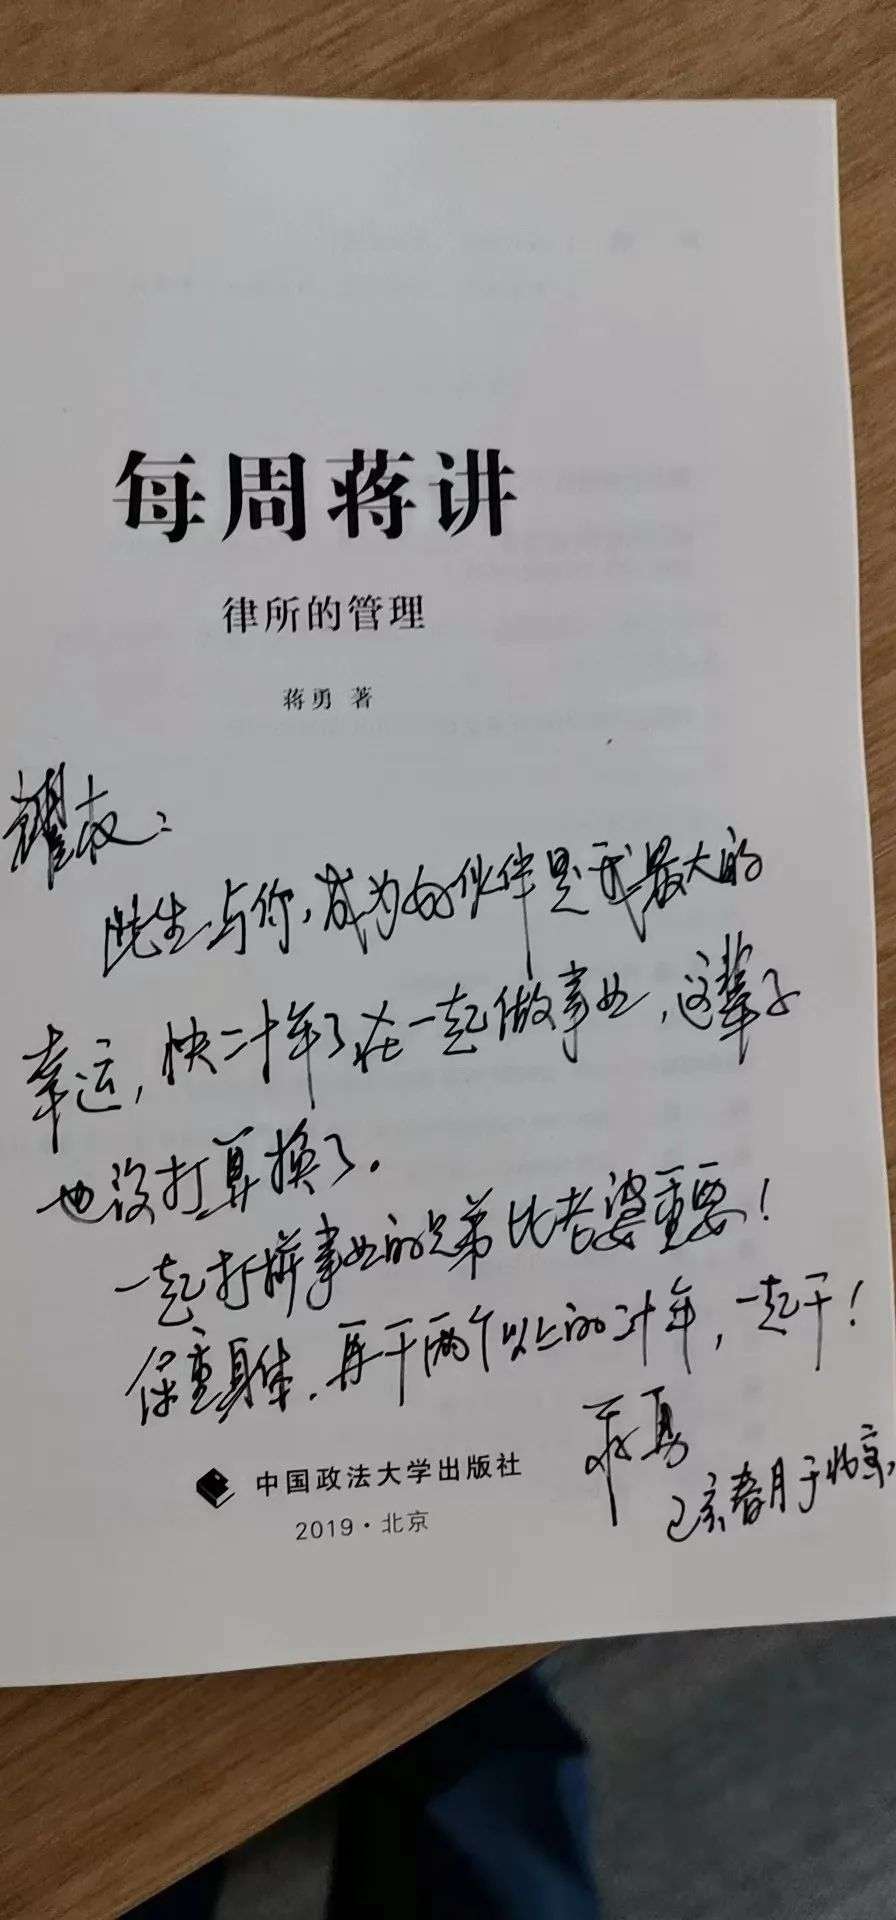 每周蒋讲
律所的管理
蒋勇 著
耀权：
此生与你，成为好伙伴是我最大的
幸运，快二十年了在一起做事业，这辈子
也没打算换了。
一起打拼事业的兄弟比老婆重要！
保重身体，再干两个以上的二十年，一起干！
蒋勇
己亥春月于北京
中国政法大学出版社
2019·北京